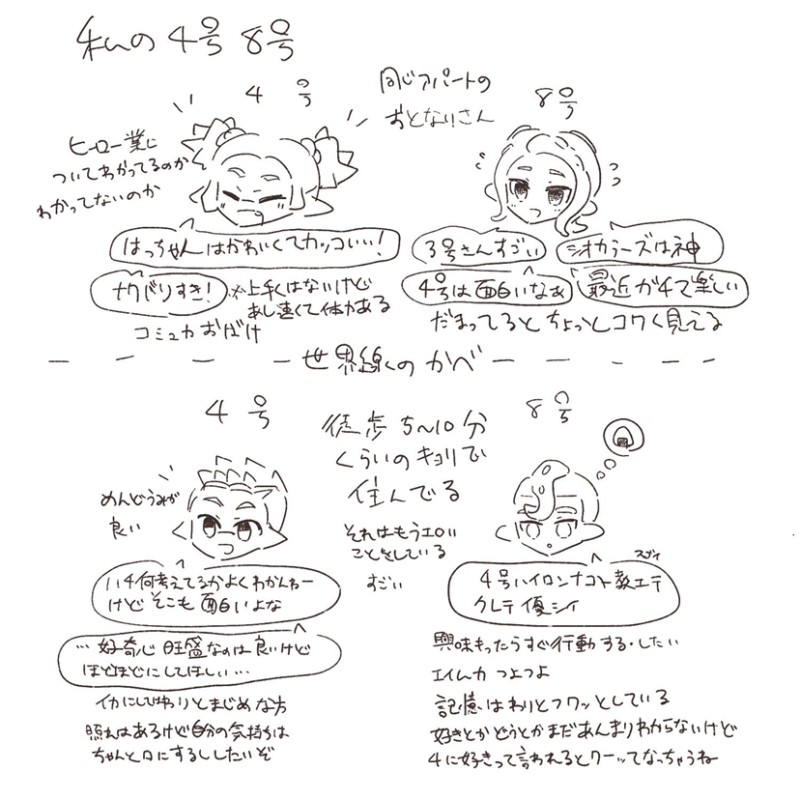 私の 4号 8号
4号
同じアパートの
おとなりさん
8号
ヒーロー業に
ついてわかってるのか
わかってないのか
はっちゃんはかわいくてカッコいい!
ナワバリすき!
※上手くはないけど
あし速くて体力ある
コミュ力おばけ
3号さんすごい
シオカラーズは神
4号は面白いなあ
最近ガチで楽しい
だまってるとちょっとコワく見える
世界線のかべ
4号
徒歩5~10分
くらいのキョリで
住んでる
8号
めんどうみが
良い
それはもうエロい
ことをしている
すごい
い4何考えてるかよくわかんねー
けど そこも面白いよな
…好奇心旺盛なのは良いけど
ほどほどにしてほしい…
イカにしてはわりとまじめな方
照れはあるけど自分の気持ちは
ちゃんと口にするししたいぞ
スゴイ
4号ハイロンナコト教エテ
クレテ優シイ
興味もったらすぐ行動する・したい
エイム力つよつよ
記憶はわりとフワッとしている
好きとかどうとかまだあんまりわからないけど
4に好きって言われるとワーッてなっちゃうね